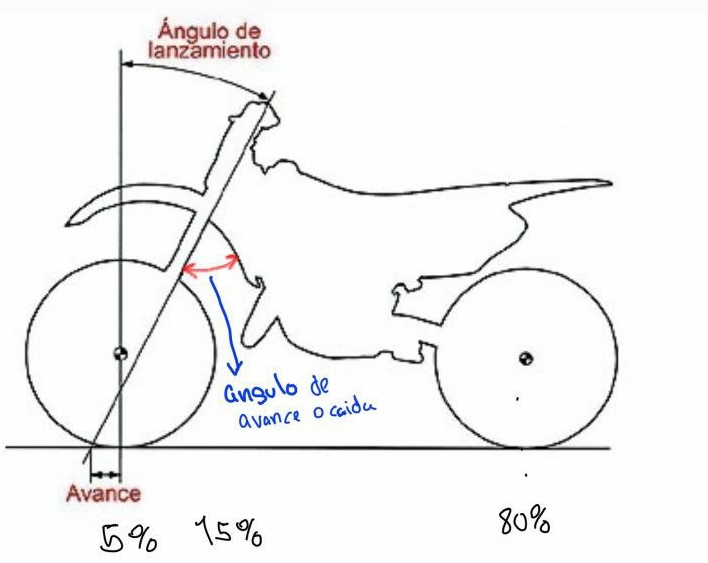 Ángulo de
lanzamiento
angulo de
avance o caida
Avance
5% 15% 80%